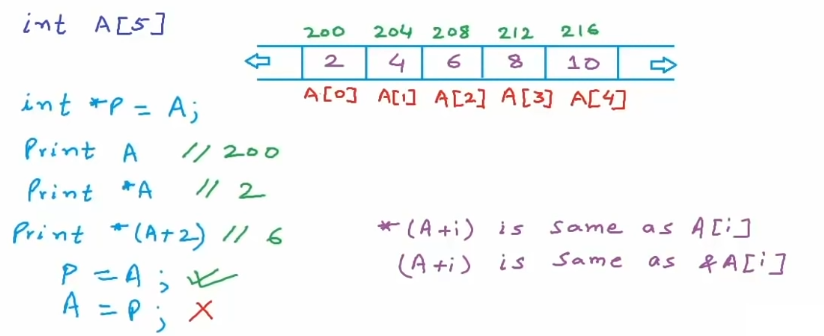 int A[5]
200 204 208 212 216
2 4 6 8 10
A[0] A[1] A[2] A[3] A[4]
int *P = A;
Print A // 200
Print *A // 2
Print *(A+2) // 6
*(A+i) is same as A[i]
P = A; ✓
(A+i) is same as &A[i]
A = P; ✗